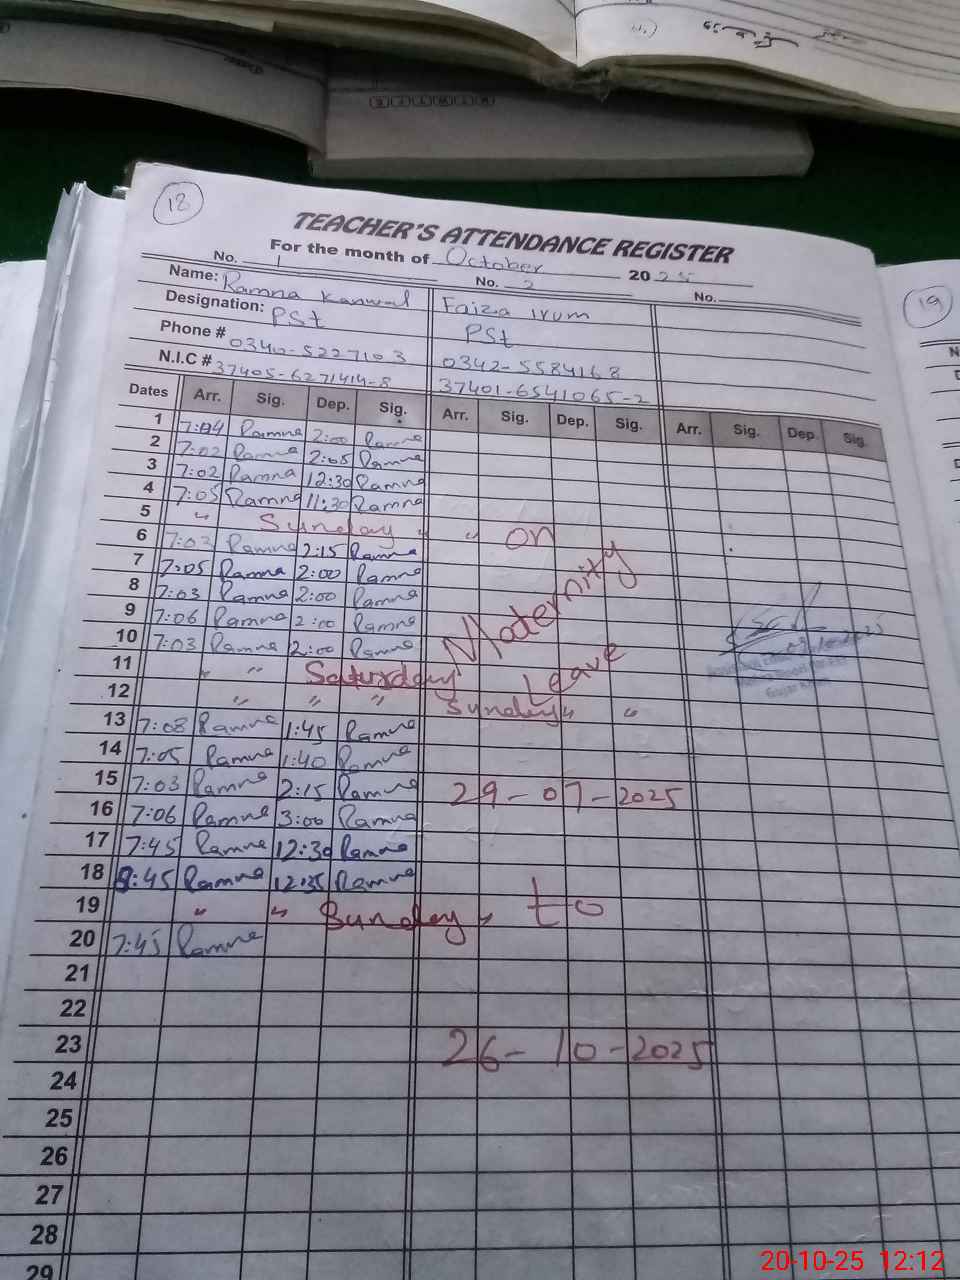 18
TEACHER'S ATTENDANCE REGISTER
For the month of October 2025
No. 1 No. 2 No.
Name: Ramna Kanwal Faiza Irum
Designation: PSt PSt
Phone # 0340-5227103 0342-5584168
N.I.C # 37405-6271414-8 37401-6541065-2
Dates Arr. Sig. Dep. Sig. Arr. Sig. Dep. Sig. Arr. Sig. Dep. Sig.
1 7:04 Ramna 2:00 Ramna
2 7:02 Ramna 2:05 Ramna
3 7:02 Ramna 12:30 Ramna
4 7:05 Ramna 11:30 Ramna
5 " Sunday " " on
6 7:03 Ramna 2:15 Ramna
7 7:05 Ramna 2:00 Ramna
8 7:03 Ramna 2:00 Ramna
9 7:06 Ramna 2:00 Ramna Maternity
10 7:03 Ramna 2:00 Ramna
11 " " Saturday Leave
12 " " " Sunday " "
13 7:08 Ramna 1:45 Ramna
14 7:05 Ramna 1:40 Ramna
15 7:03 Ramna 2:15 Ramna 29-07-2025
16 7:06 Ramna 3:00 Ramna
17 7:45 Ramna 12:30 Ramna
18 8:45 Ramna 12:35 Ramna
19 " " Sunday " to
20 7:45 Ramna
21
22
23 26-10-2025
24
25
26
27
28
29
Gujar Khan
19
20-10-25 12:12